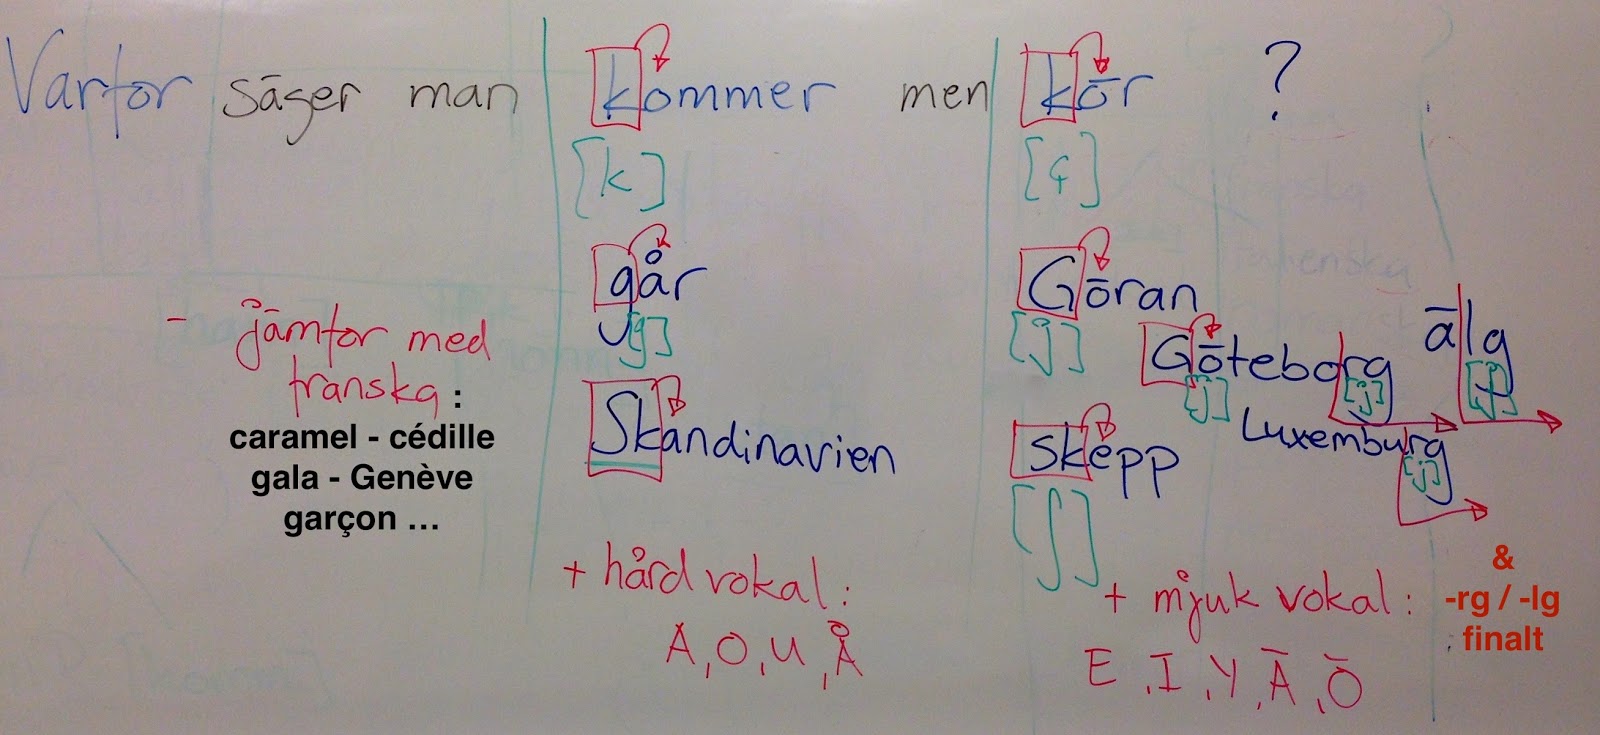 Varför säger man kommer men kör ?
[k] [ç]
går Göran
[g] [j]
Göteborg älg
[j] [j] [j]
- jämför med
franska :
caramel - cédille
gala - Genève
garçon ...
Skandinavien skepp
[ʃ]
Luxemburg
[j]
+ hård vokal :
A, O, U, Å
+ mjuk vokal :
E, I, Y, Ä, Ö
&
-rg / -lg
finalt